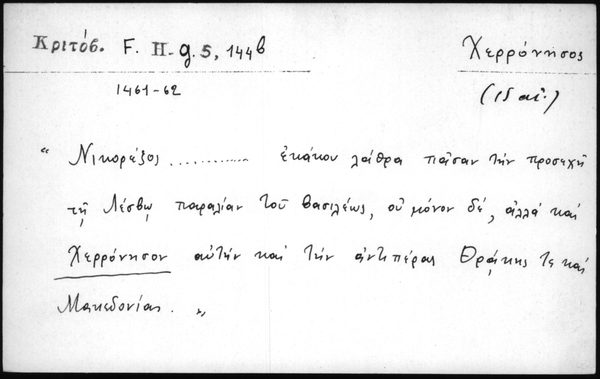 Κριτόβ. F. H-g.5, 144b
Χερρόνησος
1461-62
(15 αἰ.)
“ Νικορέζος ............. ἐκάκου λάθρα πᾶσαν τὴν προσεχῆ
τῇ Λέσβῳ παραλίαν τοῦ βασιλέως, οὐ μόνον δέ, ἀλλά καί
Χερρόνησον αὐτήν καί τήν ἀντιπέρας Θρᾴκης τε καί
Μακεδονίας. „